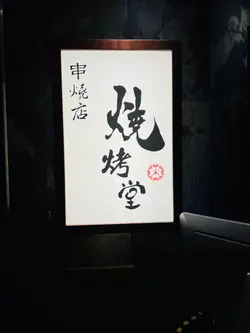 串燒店
燒烤堂
火